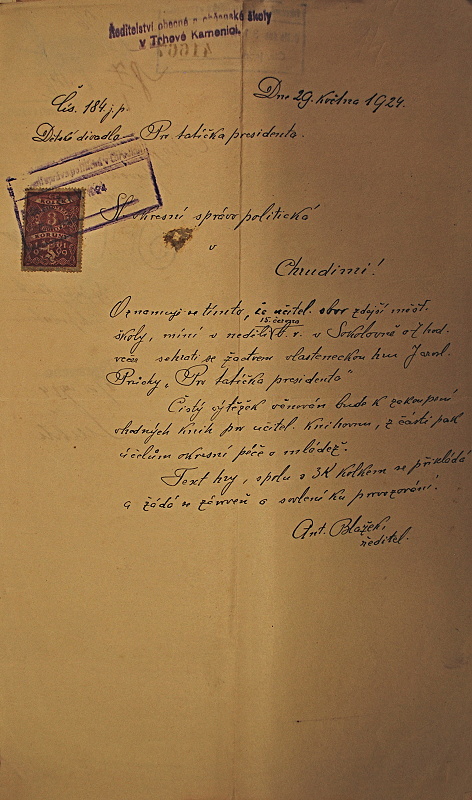 Ředitelství obecné a občanské školy
v Trhové Kamenici.
41667
Dne 29. května 1924.
Čís. 184 j. p.
Dětské divadlo - Pro tatíčka presidenta.
Slavná okresní správo politická
v
Chrudimi!
Oznamuji se tímto, že učitel. sbor zdejší měšť.
15. června
školy, míní v neděli t. r. v Sokolovně o hod.
večer sehrati se žactvem vlasteneckou hru Jarosl.
Průchy „Pro tatíčka presidenta“
Čistý výtěžek věnován bude k zakoupení
vhodných knih pro učitel. knihovnu, z části pak
účelům okresní péče o mládež.
Text hry, spolu s 3K kolkem se přikládá
a žádá se zároveň o svolení ku provozování.
Ant. Blažek,
ředitel.